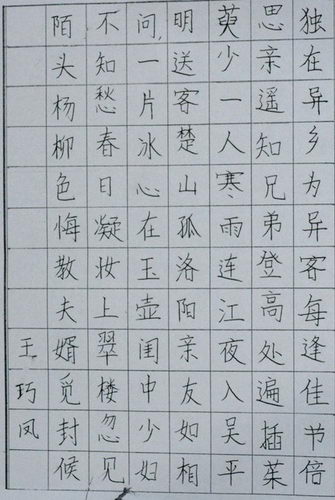 独在异乡为异客每逢佳节倍
思亲遥知兄弟登高处遍插茱
萸少一人寒雨连江夜入吴平
明送客楚山孤洛阳亲友如相
问一片冰心在玉壶闺中少妇
不知愁春日凝妆上翠楼忽见
陌头杨柳色悔教夫婿觅封候
王巧凤